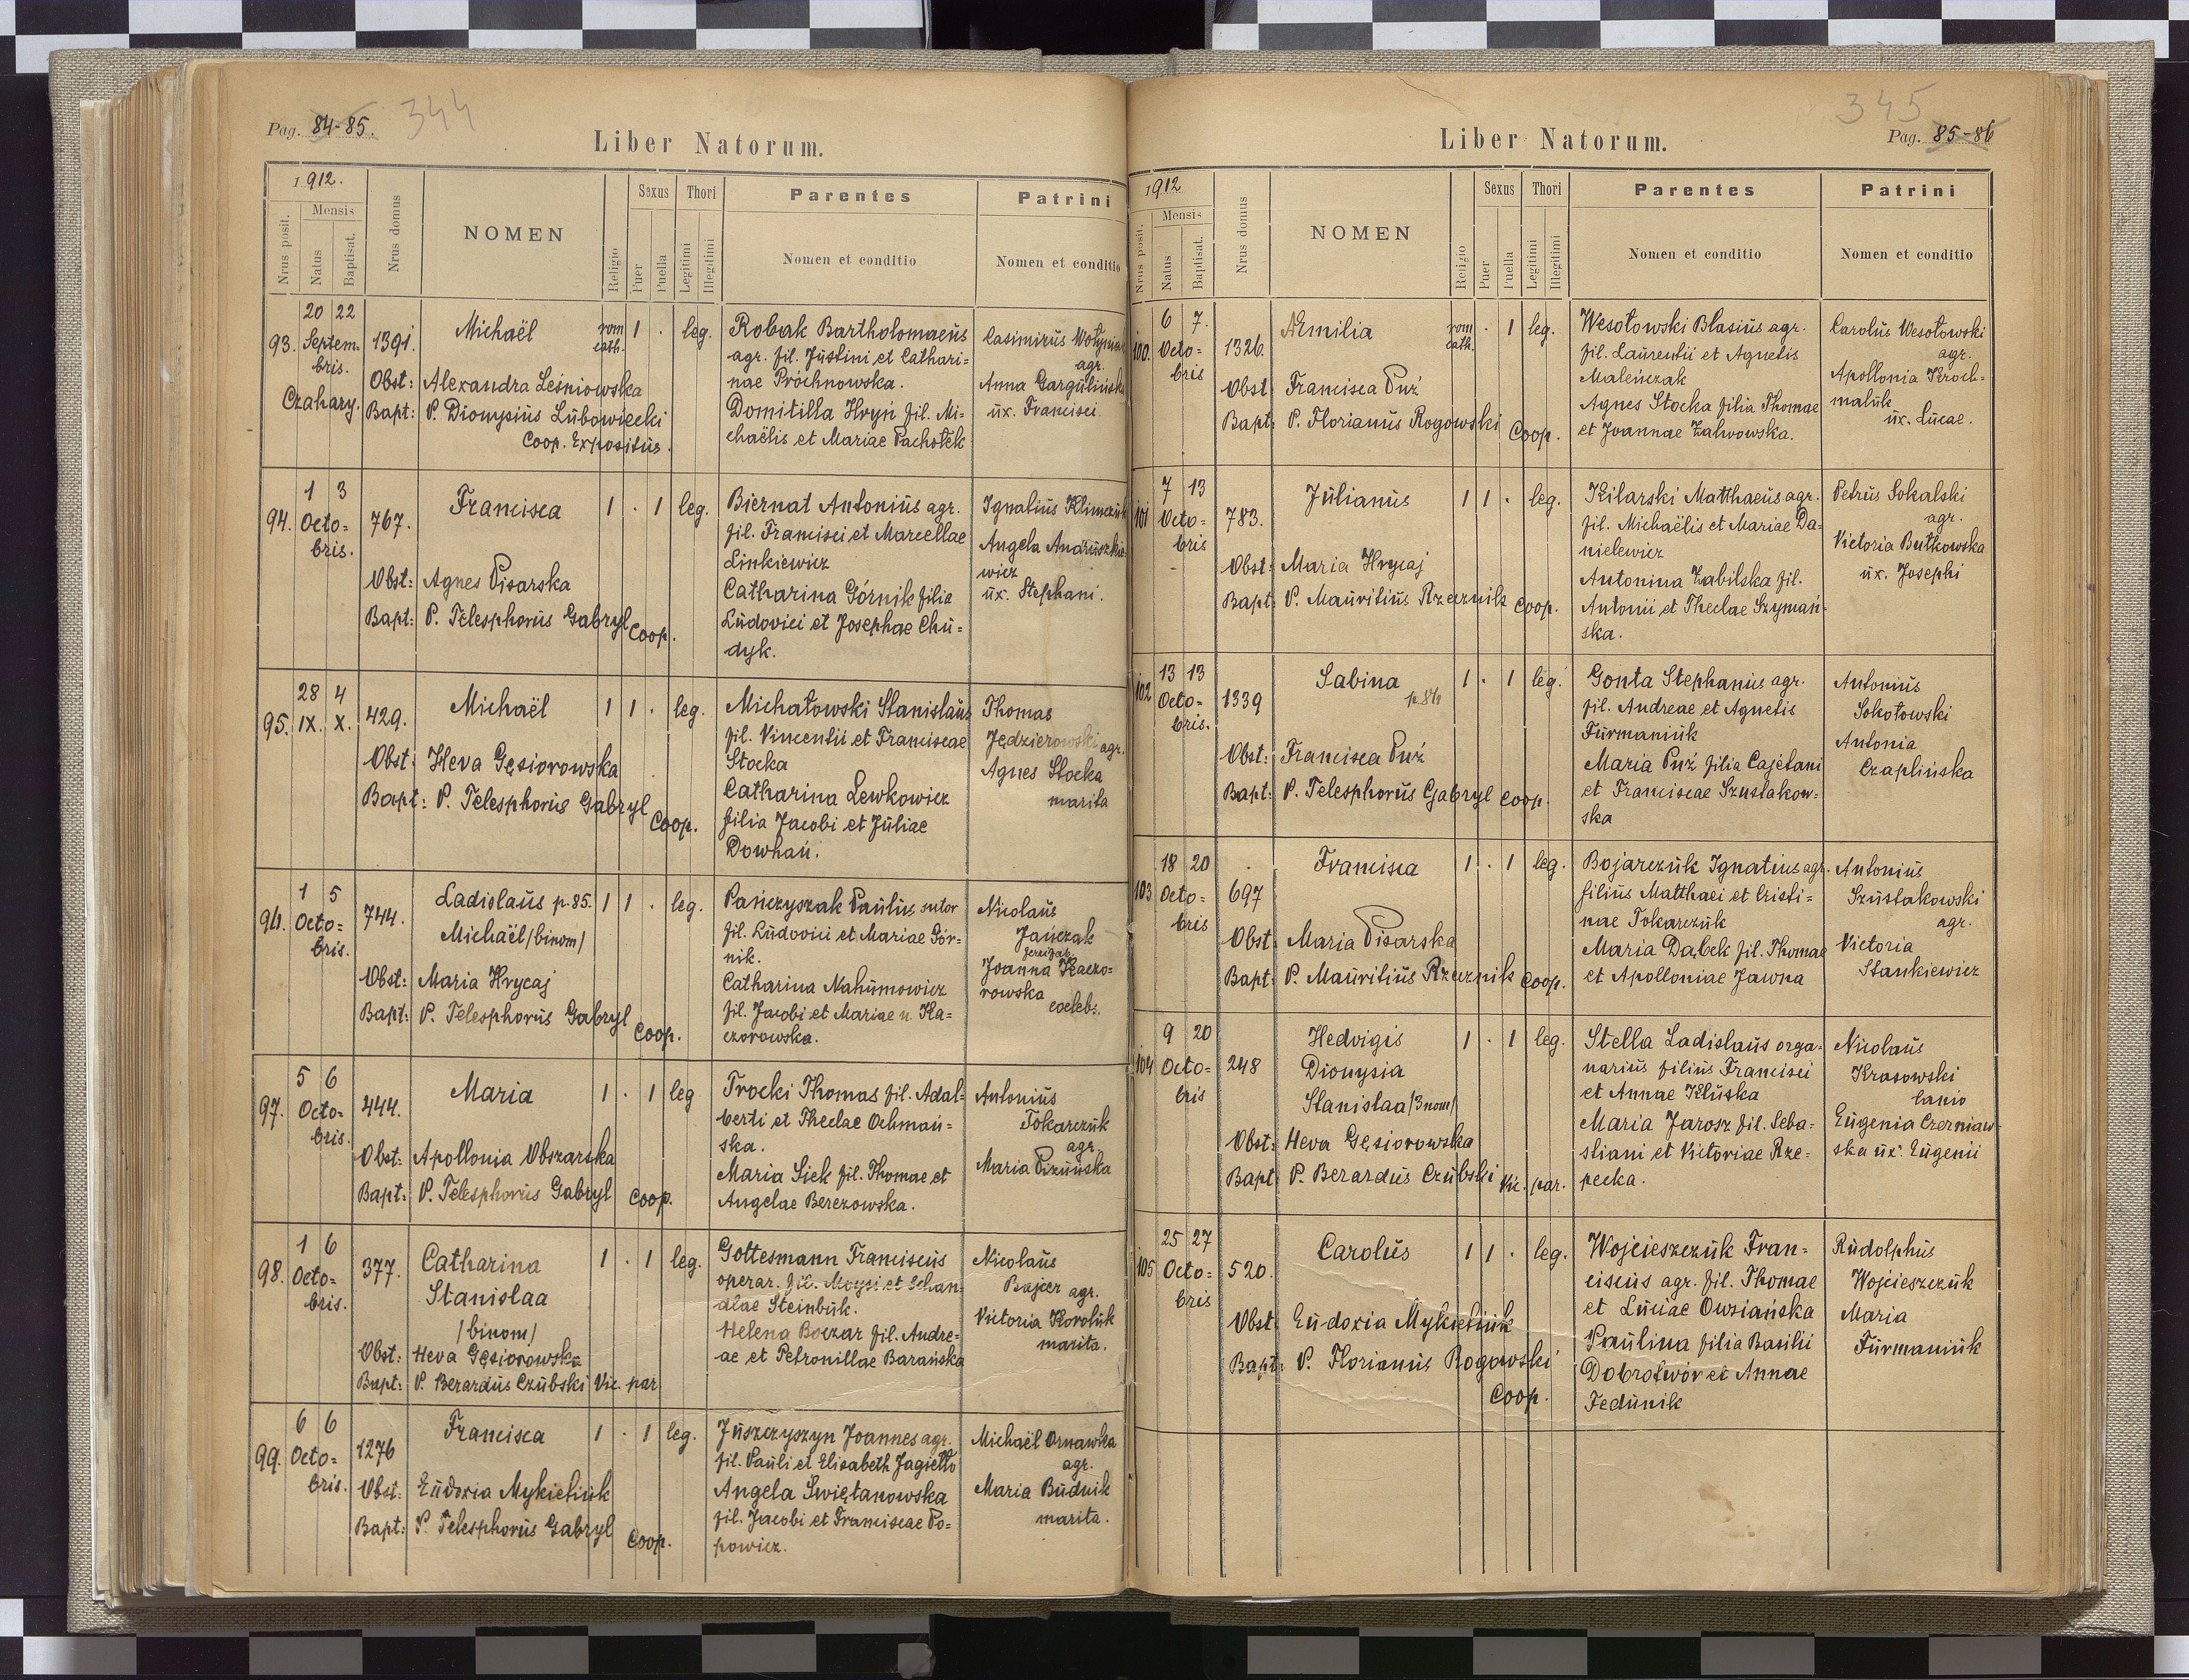 Pag. 84-85. 344
Liber Natorum.
1912.
Nrus posit.
Mensis
Natus
Baptisat.
Nrus domus
NOMEN
Religio
Sexus
Puer
Puella
Thori
Legitimi
Illegitimi
Parentes
Nomen et conditio
Patrini
Nomen et conditio
93.
20 22
Septem-
bris.
Czahary.
1391.
Michaël
rom
cath.
1 . leg.
Obst: Alexandra Leśniowska
Bapt: P. Dionysius Lubowiecki
Coop. Expositus.
Robak Bartholomaeus
agr. fil. Justini et Cathari-
nae Próchnowska.
Domitilla Hryń fil. Mi-
chaëlis et Mariae Pachołek
Casimirus
agr.
Anna Gargulińska
ux. Francisci.
94.
1 3
Octo-
bris.
767.
Francisca
1 . 1 leg.
Obst: Agnes Pisarska
Bapt: P. Telesphorus Gabryl Coop.
Biernat Antonius agr.
fil. Francisci et Marcellae
Linkiewicz
Catharina Górnik filia
Ludovici et Josephae Chu-
dyk.
Ignatius Klimczuk
Angela Andruszkie-
wicz
ux. Stephani.
95.
28 4
IX. X.
429.
Michaël
1 1 . leg.
Obst: Heva Gęsiorowska
Bapt: P. Telesphorus Gabryl Coop.
Michałowski Stanislaus
fil. Vincentii et Franciscae
Stocka
Catharina Lewkowicz
filia Jacobi et Juliae
Dowhań.
Thomas
Jędzierowski agr.
Agnes Stocka
marita
96.
1 5
Octo-
bris.
744.
Ladislaus p. 85.
Michaël /binom/
1 1 . leg.
Obst: Maria Hrycaj
Bapt: P. Telesphorus Gabryl Coop.
Pańczyszak Paulus sutor
fil. Ludovici et Mariae Gór-
nik.
Catharina Nahumowicz
fil. Jacobi et Mariae n. Ka-
czorowska.
Nicolaus
Jańczak
Joanna Kaczo-
rowska
coeleb:.
97.
5 6
Octo-
bris.
444.
Maria
1 . 1 leg
Obst: Apollonia Obszarska
Bapt: P. Telesphorus Gabryl Coop.
Trocki Thomas fil. Adal-
berti et Theclae Ochmań-
ska.
Maria Siek fil. Thomae et
Angelae Berezowska.
Antonius
Tokarczuk
agr.
Maria Pizuńska
98.
1 6
Octo-
bris.
377.
Catharina
Stanislaa
/binom/
1 . 1 leg.
Obst: Heva Gęsiorowska
Bapt: P. Berardus Czubski Vic. par
Gottesmann Franciscus
operar. fil. Moysi et Schan-
dlae Steinbuk.
Helena Boczar fil. Andre-
ae et Petronillae Barańska
Nicolaus
Bajer agr.
Victoria Koroluk
marita.
99.
6 6
Octo-
bris.
1276
Francisca
1 . 1 leg.
Obst: Eudoxia Mykietiuk
Bapt: P. Telesphorus Gabryl Coop.
Juszczyszyn Joannes agr.
fil. Pauli et Elisabeth Jagiełło
Angela Świętanowska
fil. Jacobi et Franciscae Po-
powicz.
Michaël Ornawka
agr.
Maria Budnik
marita.
345
Pag. 85-86
Liber Natorum.
1912
Nrus posit.
Mensis
Natus
Baptisat.
Nrus domus
NOMEN
Religio
Sexus
Puer
Puella
Thori
Legitimi
Illegitimi
Parentes
Nomen et conditio
Patrini
Nomen et conditio
100.
6 7.
Octo-
bris
1326.
AEmilia
rom
cath.
. 1 leg.
Obst Francisca Puź
Bapt: P. Florianus Rogowski Coop.
Wesołowski Blasius agr.
fil. Laurentii et Agnetis
Maleńczak
Agnes Stocka filia Thomae
et Joannae Zalwowska.
Carolus Wesołowski
agr.
Apollonia Kroch-
maluk
ux. Lucae.
101
7 13
Octo-
bris
783.
Julianus
1 1 . leg.
Obst: Maria Hrycaj
Bapt: P. Mauritius Rzeznik Coop.
Kilarski Matthaeus agr.
fil. Michaëlis et Mariae Da-
nielewicz
Antonina Zabilska fil.
Antonii et Theclae Szymań-
ska.
Petrus Sokalski
agr.
Victoria Butkowska
ux. Josephi
102
13 13
Octo-
bris.
1339
Sabina
p. 86
1 . 1 leg.
Obst: Francisca Puź
Bapt: P. Telesphorus Gabryl Coop.
Gonta Stephanus agr.
fil. Andreae et Agnetis
Furmaniuk
Maria Puź filia Cajetani
et Franciscae Szustakow-
ska
Antonius
Sokołowski
Antonia
Czaplińska
103
18 20
Octo-
bris
697
Francisca
1 . 1 leg.
Obst: Maria Pisarska
Bapt: P. Mauritius Rzeznik Coop.
Bojarczuk Ignatius agr.
filius Matthaei et Cristi-
nae Tokarczuk
Maria Dąbek fil. Thomae
et Apolloniae Jawna
Antonius
Szustakowski
agr.
Victoria
Stankiewicz
104
9 20
Octo-
bris
248
Hedvigis
Dionysia
Stanislaa /3nom/
1 . 1 leg.
Obst: Heva Gęsiorowska
Bapt: P. Berardus Czubski Vic. par.
Stella Ladislaus orga-
narius filius Francisci
et Annae Kluska
Maria Jarosz fil. Seba-
stiani et Victoriae Rze-
pecka.
Nicolaus
Krasowski
lanio
Eugenia Czerniaw-
ska ux. Eugenii
105
25 27
Octo-
bris
520.
Carolus
1 1 . leg.
Obst: Eudoxia Mykietiuk
Bapt: P. Florianus Rogowski
Coop.
Wojcieszczuk Fran-
ciscus agr. fil. Thomae
et Luciae Owsiańska
Paulina filia Basilii
Dobrotwór et Annae
Fedunik
Rudolphus
Wojcieszczuk
Maria
Furmaniuk